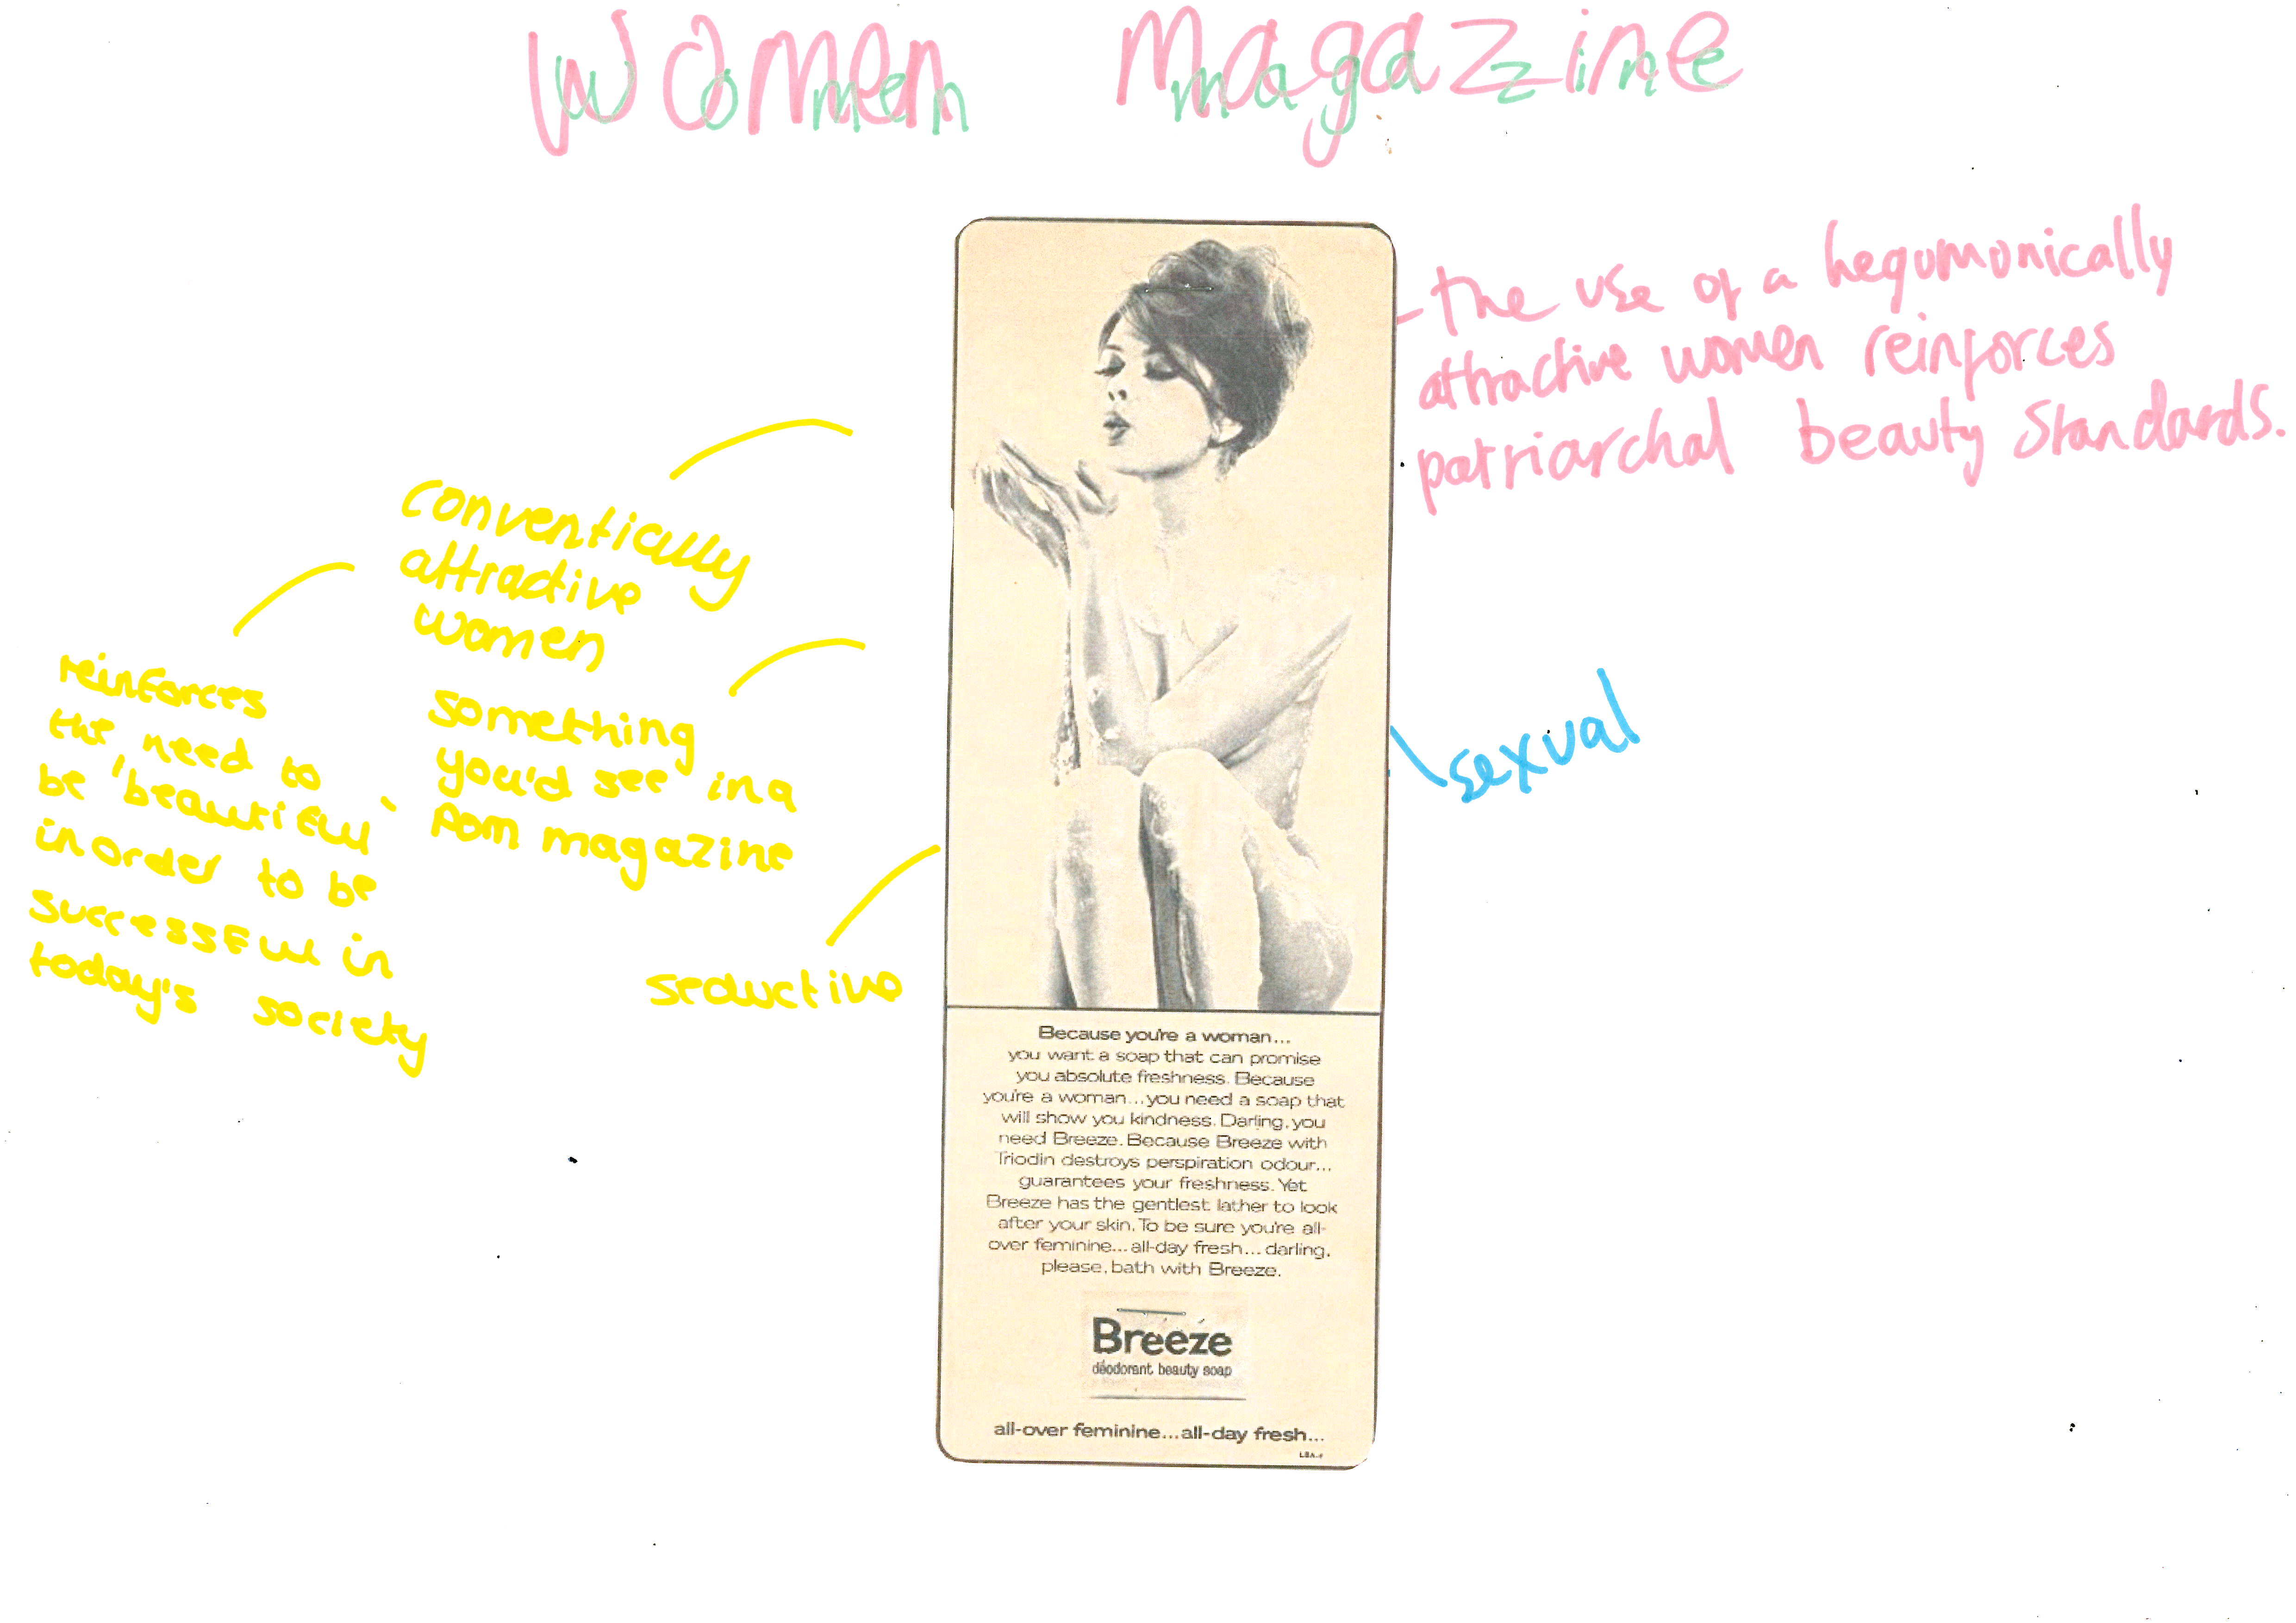 Women magazine
- the use of a hegumonically
attractive women reinforces
patriarchal beauty standards.
conventically
attractive
women
reinforces
the need to
be 'beautiful'
in order to be
successful in
today's society
something
you'd see in a
porn magazine
sexual
seductive
Because you're a woman...
you want a soap that can promise
you absolute freshness. Because
you're a woman...you need a soap that
will show you kindness. Darling, you
need Breeze. Because Breeze with
Triodin destroys perspiration odour...
guarantees your freshness. Yet
Breeze has the gentlest lather to look
after your skin. To be sure you're all-
over feminine... all-day fresh... darling,
please, bath with Breeze.
Breeze
deodorant beauty soap
all-over feminine...all-day fresh...